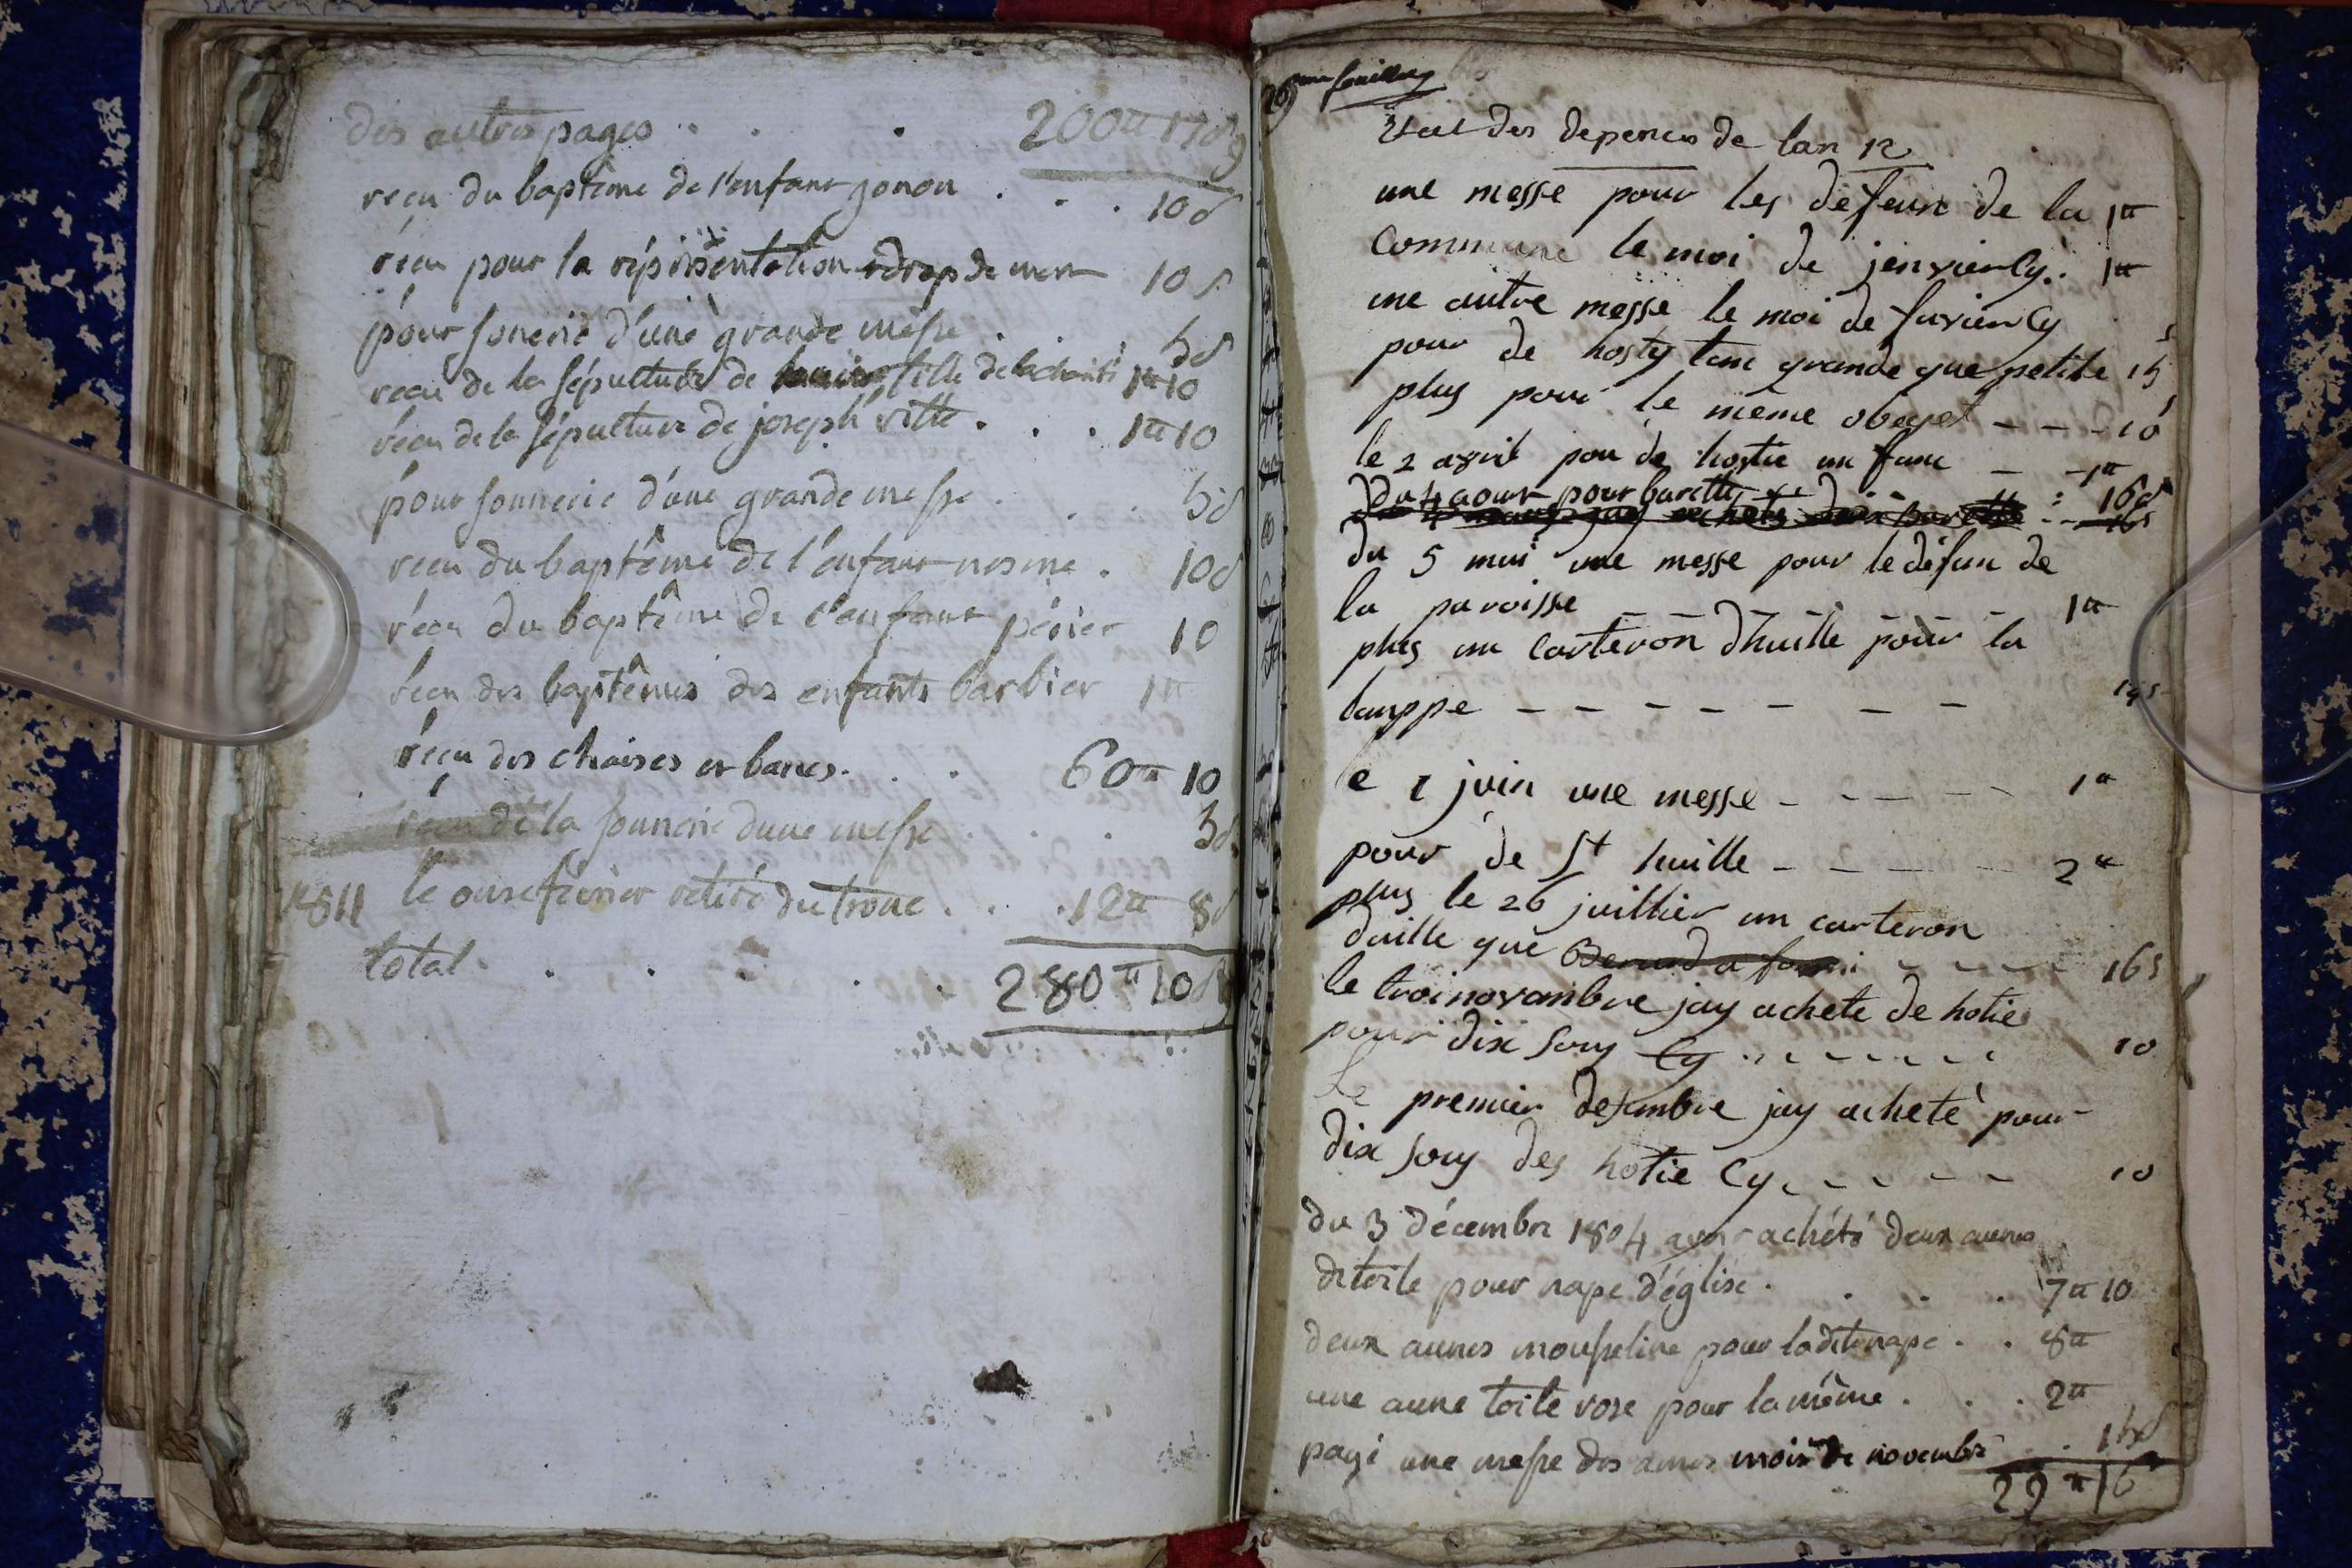 des autres pages . . . 200 ₶ 17 s 9
recu du baptême de l'enfant jonon . . . 10 s
recu pour la représentation drap de mort 10 s
pour sonerie d'une grande messe . . 5 s
recu de la sépulture de fille de la charité 1₶ 10
recu de la sépulture de joseph vitte . . . 1₶ 10
pour sonnerie d'une grande messe . . . 5 s
recu du baptême de l'enfant . 10 s
recu du baptême de l'enfant périer 10
recu des baptêmes des enfants barbier 1₶
recu des chaises et bancs . . . 60₶ 10
recu de la sonnerie dune messe . . . 5 s
1811 le onse fevrier retiré du tronc . . . 12₶ 8 s
total . . . . . . 280₶ 10 s
29
Etat des depences de lan 12
une messe pour les defeun de la 1₶
Commune le moi de jenvier Cy . 1₶
une autre messe le moi de fuvier Cy
pour de hosty tant grande que petite 15 s
plus pour le même obejet - - - 10 s
le 2 avril pou de hostie un fran - - 1₶
du 4 aout pour burettes : 16 s
du 5 mai une messe pour le défun de
la paroisse - - - - - - 1₶
plus un carteron dhuille pour la
lamppe - - - - - - - -
e 1 juin une messe - - - - - 1₶
pour de St huille - - - - - 2₶
plus le 26 juillier un carteron
duille que Berard a forni - - - - 16 s
le troi novambre jay achete de hotie
pour dix sous Cy . - - - - - - 10
Le premier desambre jay acheté pour
dix sous des hotie Cy - - - - - 10
du 3 décembre 1804 avoir achété deux aunes
de toile pour nape d'église . . . . 7₶ 10
deux aunes mousseline pour ladite nape . . 8₶
une aune toile rose pour la même . . . 2₶
payé une messe des ames mois de novembre . . 15 s
29₶ 16